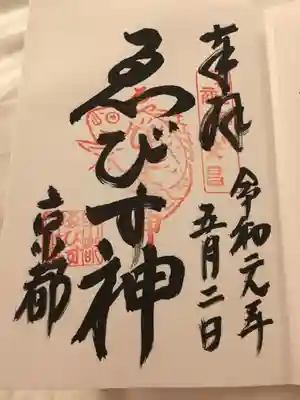 奉拝
令和元年
五月二日
ゑびす神
京都